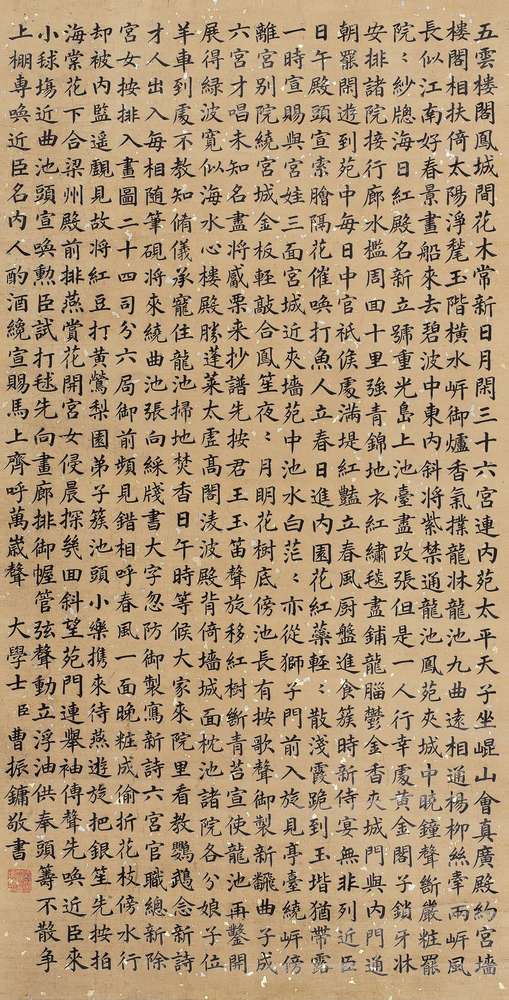 五雲樓閣鳳城間花木常新日月閑三十六宮連內苑太平天子坐崐山會真廣殿約宮墻
樓閣相扶倚太陽淨甃玉階橫水岍御爐香氣撲龍牀龍池九曲遠相通楊柳絲牽兩岍風
長似江南好春景畫船來去碧波中東內斜將紫禁通龍池鳳苑夾城中曉鐘聲斷嚴粧罷
院〻紗牕海日紅殿名新立號重光島上池臺盡改張但是一人行幸處黃金閣子鎖牙牀
安排諸院接行廊水檻周回十里強青錦地衣紅繡毯盡鋪龍腦鬱金香夾城門與內門通
朝罷閑遊到苑中每日中官祇候處滿堤紅豔立春風厨盤進食簇時新侍宴無非列近臣
日午殿頭宣索膾隔花催喚打魚人立春日進內園花紅蘂輕〻散淺霞跪到玉堦猶帶露
一時宣賜與宮娃三面宮城近夾墻苑中池水白茫〻亦從獅子門前入旋見亭臺繞岍傍
離宮別院繞宮城金板輕敲合鳳笙夜〻月明花樹底傍池長有按歌聲御製新翻曲子成
六宮才唱未知名盡將觱栗來抄譜先按君王玉笛聲旋移紅樹斷青苔宣使龍池再鑿開
展得綠波寬似海水心樓殿勝蓬萊太虛高閣淩波殿背倚墻城面枕池諸院各分娘子位
羊車到處不教知脩儀承寵住龍池掃地焚香日午時等候大家來院里看教鸚鵡念新詩
才人出入每相隨筆硯將來繞曲池張向綵牋書大字忽防御製寫新詩六宮官職總新除
宮女按排入畫圖二十四司分六局御前頻見錯相呼春風一面晚粧成偷折花枝傍水行
却被內監遥覷見故將紅豆打黃鶯梨園弟子簇池頭小樂攜來待燕遊旋把銀笙先按拍
海棠花下合梁州殿前排燕賞花開宮女侵晨探幾回斜望苑門連舉袖傳聲先喚近臣來
小球塲近曲池頭宣喚勲臣試打毬先向畫廊排御幄管弦聲動立浮油供奉頭籌不散爭
上棚專喚近臣名內人酌酒纔宣賜馬上齊呼萬歲聲 大學士臣曹振鏞敬書